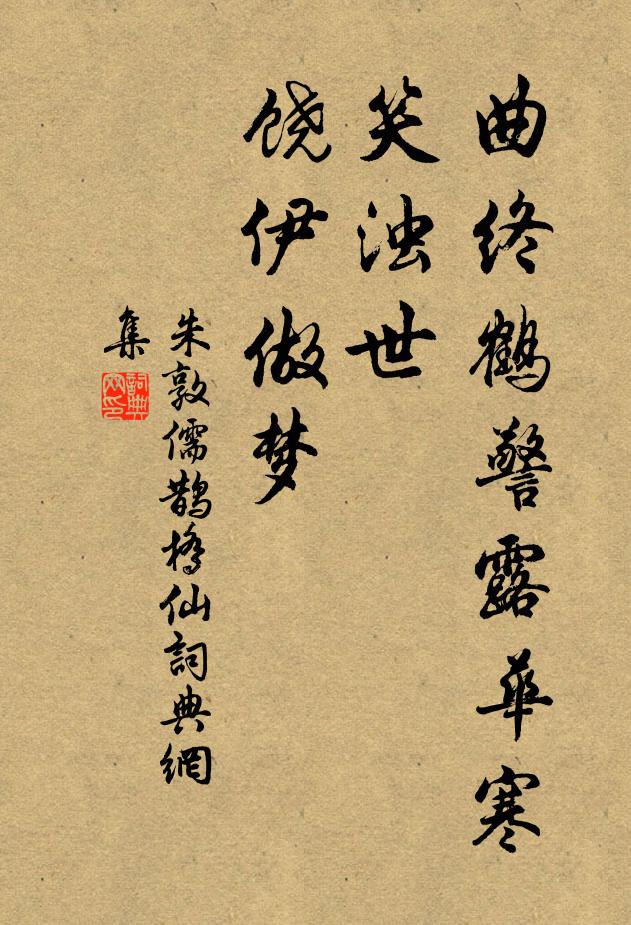 曲终鹤警露华寒
笑浊世
饶伊做梦
朱敦儒鹊橋仙詞典網
集
詞典
网印